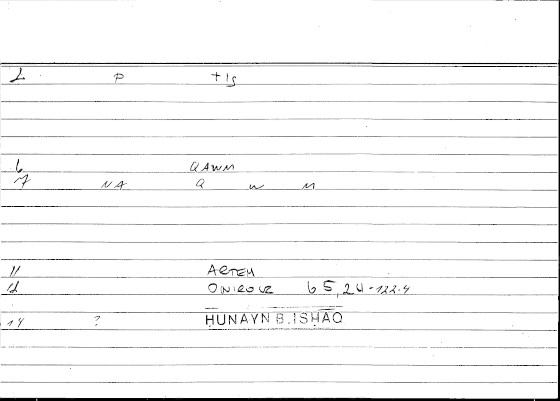 2 P +IS
6 QAWM
7 NA Q W M
11 ARTEM
12 ONIROCR 65,24-122.4
14 ? HUNAYN B. ISHAQ